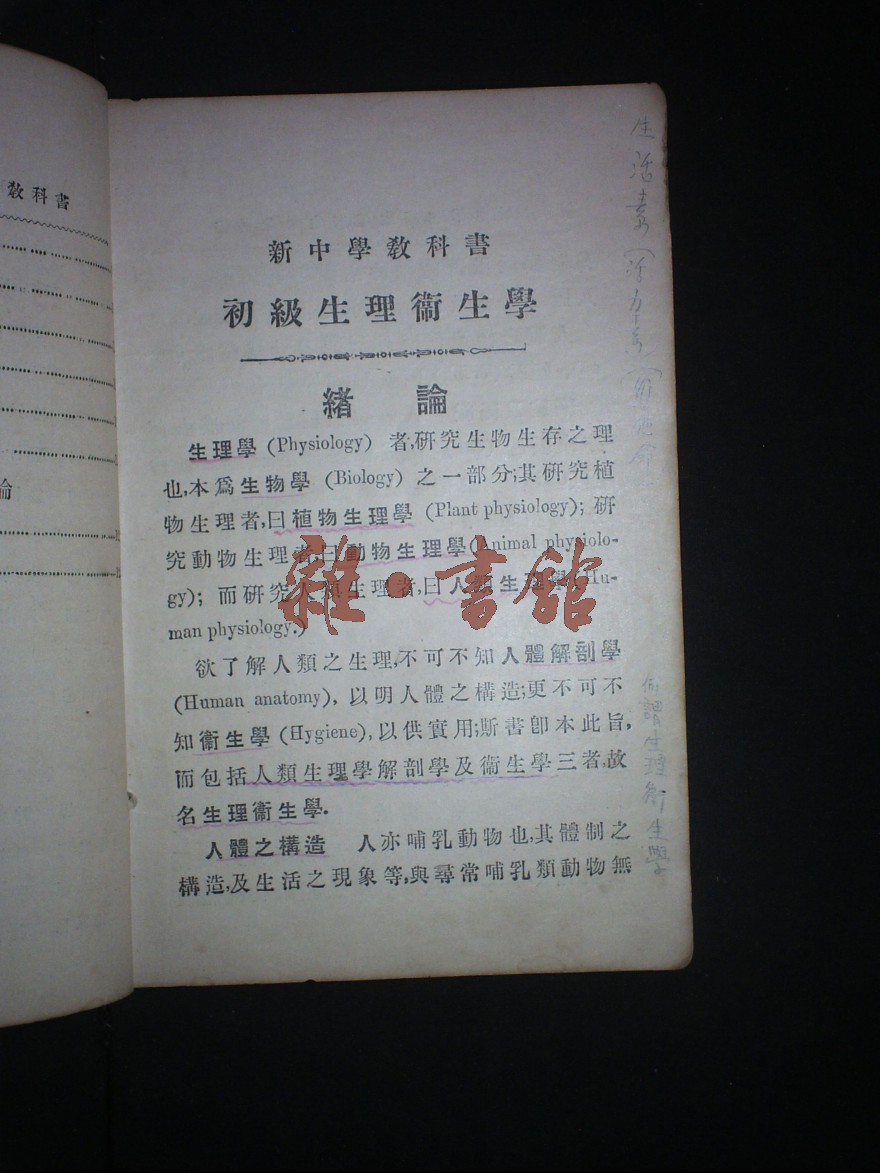 教科書
論
新中學教科書
初級生理衞生學
緒論
生理學 (Physiology) 者,研究生物生存之理
也,本爲生物學 (Biology) 之一部分;其研究植
物生理者,曰植物生理學 (Plant physiology); 研
究動物生理者,曰動物生理學 (Animal physiolo-
gy); 而研究人類生理者,曰人類生理學 (Hu-
man physiology.)
欲了解人類之生理,不可不知人體解剖學
(Human anatomy), 以明人體之構造;更不可不
知衞生學 (Hygiene), 以供實用;斯書卽本此旨,
而包括人類生理學解剖學及衞生學三者,故
名生理衞生學.
人體之構造 人亦哺乳動物也,其體制之
構造,及生活之現象等,與尋常哺乳類動物無
雜·書館
生活素
何謂生理衛生學